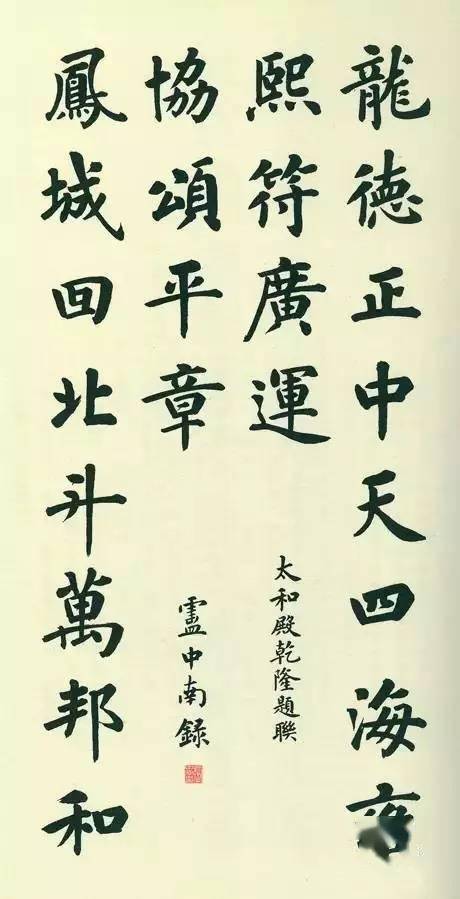 龍德正中天四海
熙符廣運
太和殿乾隆題聯
鳳城回北斗萬邦和
協頌平章
盧中南錄